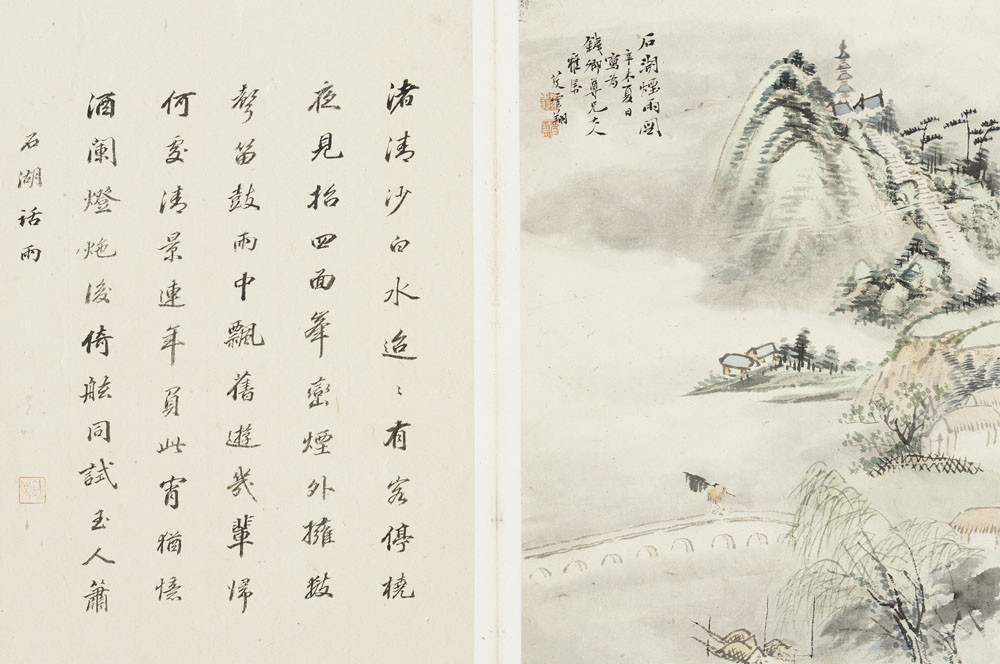 石湖煙雨圖
辛未夏日
寫為
鐵卿尊兄大人
渚清沙白水迢〻有客停橈
夜見招四面峯巒煙外擁數
聲笛鼓雨中飄舊遊幾輩歸
何處清景連年負此宵猶憶
酒闌燈炧後倚舷同試玉人簫
石湖話雨